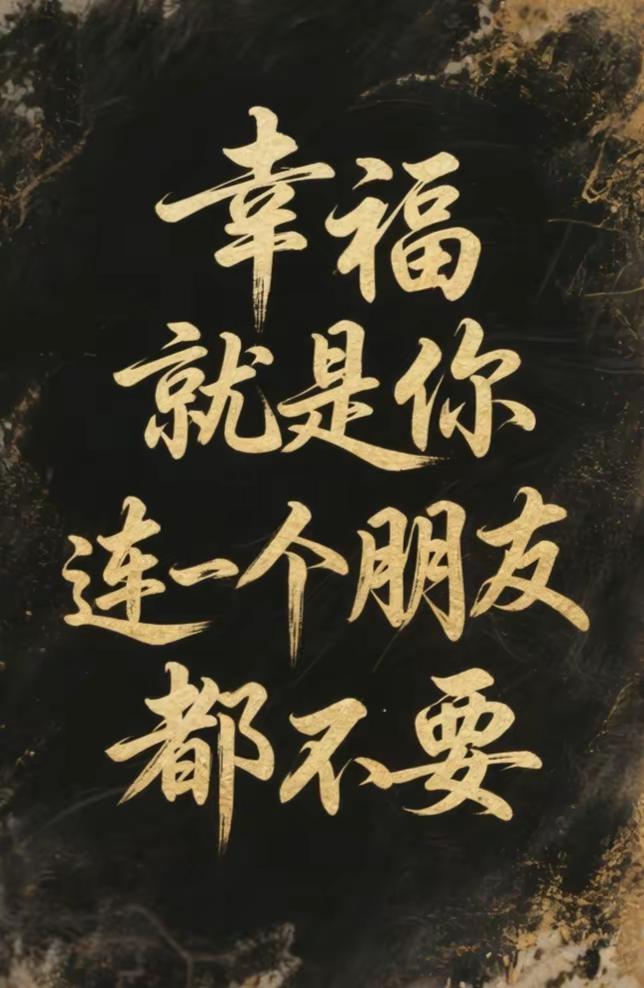 幸福
就是你
连一个朋友
都不要